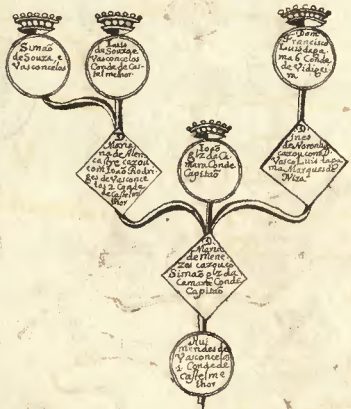 Simão
de Souza, e
Vasconcelos
Luis
de Souza, e
Vasconcelos
Conde de Cas
telmelhor
Dom
Francisco
Luis da ga
ma 6 Conde
de Vidigei
ra
D.
Maria
na de Alen
castre cazou
com João Rodri
ges de Vasconce
los 2 Conde
de Castelme
lhor
João
glz da Ca
mara Conde
Capitão
D.
Ines
de Noronha
cazou com D.
Vasco Luis da ga
ma Marques de
Niza
D.
Maria
de Mene
zes cazou co
Simão glz da
Camara Conde
Capitão
Rui
mendes de
Vasconcelos
1 Conde de
Castelme
lhor